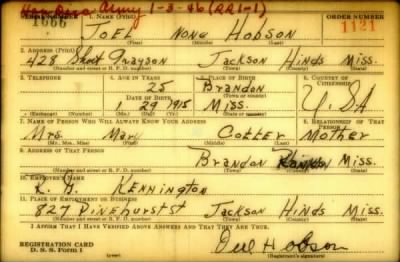 Hon Disc Army 1-3-46 (RR1-1)
SERIAL NUMBER 1. NAME (Print) ORDER NUMBER
1666 JOEL Nona Hobson 1121
(First) (Middle) (Last)
2. ADDRESS (Print)
428 Short Grayson Jackson Hinds Miss.
(Number and street or R. F. D. number) (Town) (County) (State)
3. TELEPHONE 4. AGE IN YEARS 5. PLACE OF BIRTH 6. COUNTRY OF CITIZENSHIP
25 Brandon
DATE OF BIRTH (Town or county)
1 29 1915 Miss. U.S.A
(Exchange) (Number) (Mo.) (Day) (Yr.) (State or country)
7. NAME OF PERSON WHO WILL ALWAYS KNOW YOUR ADDRESS 8. RELATIONSHIP OF THAT PERSON
Mrs. Mary Cotter Mother
(Mr., Mrs., Miss) (First) (Middle) (Last)
9. ADDRESS OF THAT PERSON
Brandon Rankin Miss.
(Number and street or R. F. D. number) (Town) (County) (State)
10. EMPLOYER'S NAME
Kennington
11. PLACE OF EMPLOYMENT OR BUSINESS
827 Pinehurst St Jackson Hinds Miss
(Number and street or R. F. D. number) (Town) (County) (State)
I AFFIRM THAT I HAVE VERIFIED ABOVE ANSWERS AND THAT THEY ARE TRUE.
REGISTRATION CARD
D. S. S. Form 1
Hobson
(Registrant's signature)